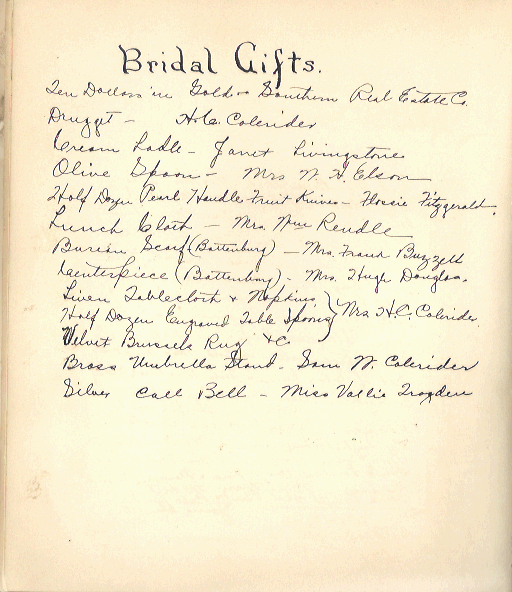 Bridal Gifts.
Ten Dollars in Gold - Southern Real Estate Co.
Drugget - H.C. Colerider
Cream Ladle - Janet Livingstone
Olive Spoon - Mrs W. H. Elson
Half Dozen Pearl Handle Fruit Knives - Flossie Fitzgerald.
Lunch Cloth - Mrs. Wm Rendle
Bureau Scarf (Battenburg) - Mrs. Frank Buzzell
Centerpiece (Battenburg) - Mrs. Hugh Douglas.
Linen Tablecloth & Napkins
Half Dozen Engraved Table Spoons } Mrs H.C. Colerider
Velvet Brussels Rug &C.
Brass Umbrella Stand - Sam W. Colerider
Silver Call Bell - Miss Vallie Trogden